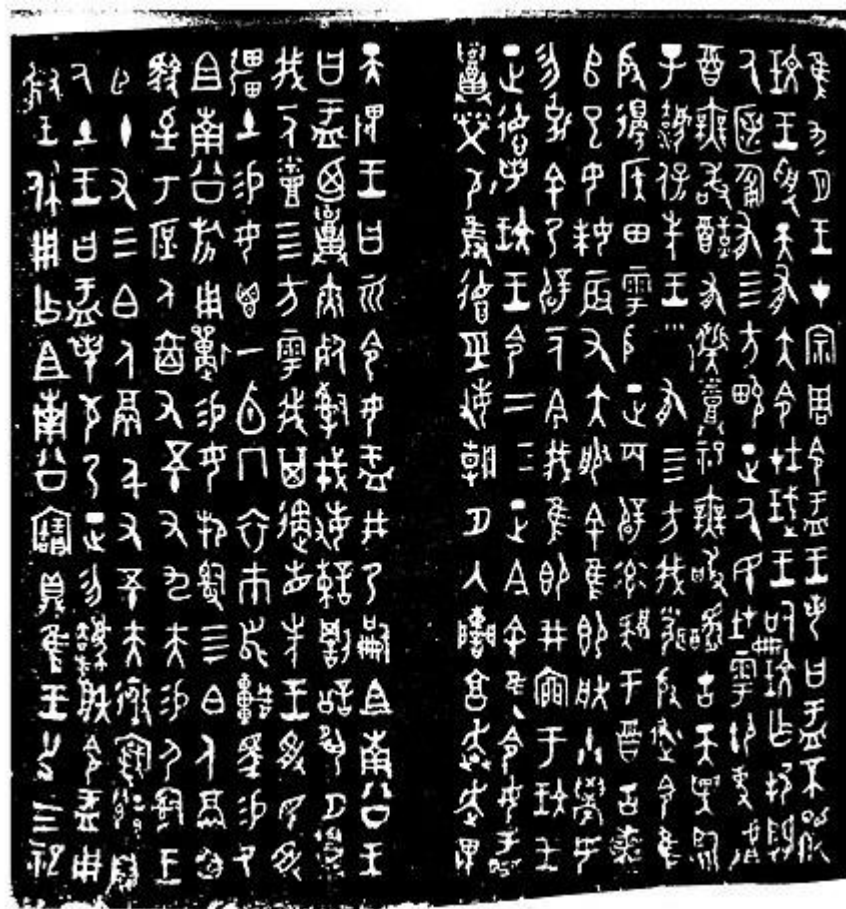 隹九月王才宗周令盂王若曰盂不顯
玟王受天有大令在珷王嗣玟乍邦闢
厥匿匍有四方畯正厥民在雩御事䖒
酉無敢酖有髭烝祀無敢擾古天異臨
子灋保先王有四方我聞殷述令隹
殷邊侯田雩殷正百辟率肄于酉古喪
𠂤巳女妹辰又大服余隹即朕小學女
勿剋余乃辟一人今我隹即井亩于玟王
正德若玟王令二三正今余隹令女盂
召榮敬雍德巠敏朝夕入讕享奔走畏
天畏王曰而令女盂井乃嗣且南公王
曰盂廼召夾死司戎敏諫罰訟夙夕召
我一人烝四方雩我其遹省先王受民受
疆土易女鬯一卣冂衣巿舄車馬易乃
且南公旂用狩易女邦司四白人鬲自
馭至于庶人六百又五十又九夫易尸司王
臣十又三白人鬲千又五十夫遷自
厥土王曰盂若敬乃正勿灋朕令盂用
對王休用乍且南公寶鼎隹王廿又三祀